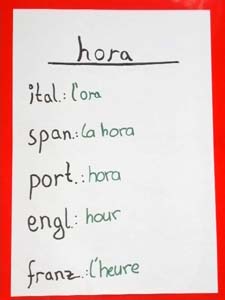 hora
ital.: l'ora
span.: la hora
port.: hora
engl.: hour
franz.: l'heure